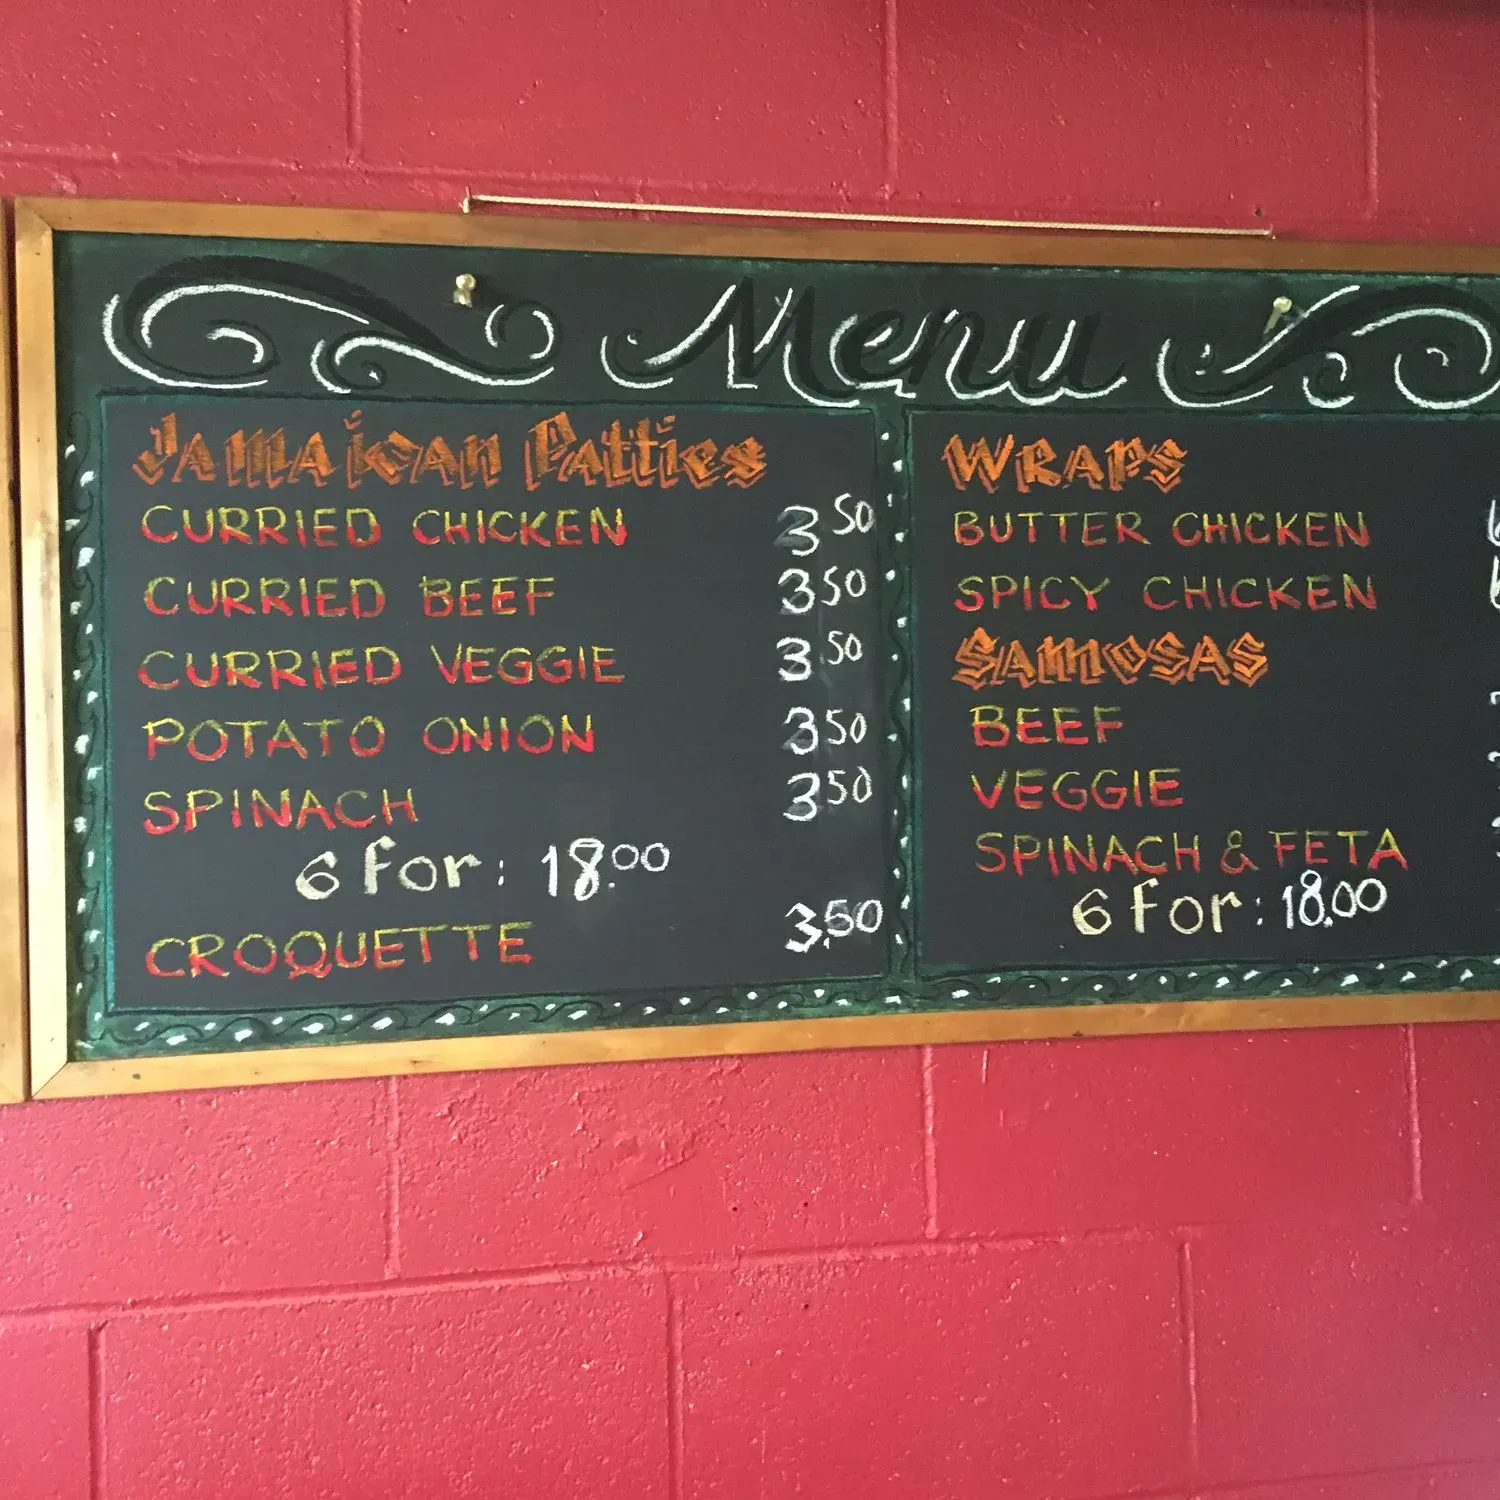 Menu
Jamaican Patties
CURRIED CHICKEN 3.50
CURRIED BEEF 3.50
CURRIED VEGGIE 3.50
POTATO ONION 3.50
SPINACH 3.50
6 for: 18.00
CROQUETTE 3.50
WRAPS
BUTTER CHICKEN
SPICY CHICKEN
SAMOSAS
BEEF
VEGGIE
SPINACH & FETA
6 for: 18.00